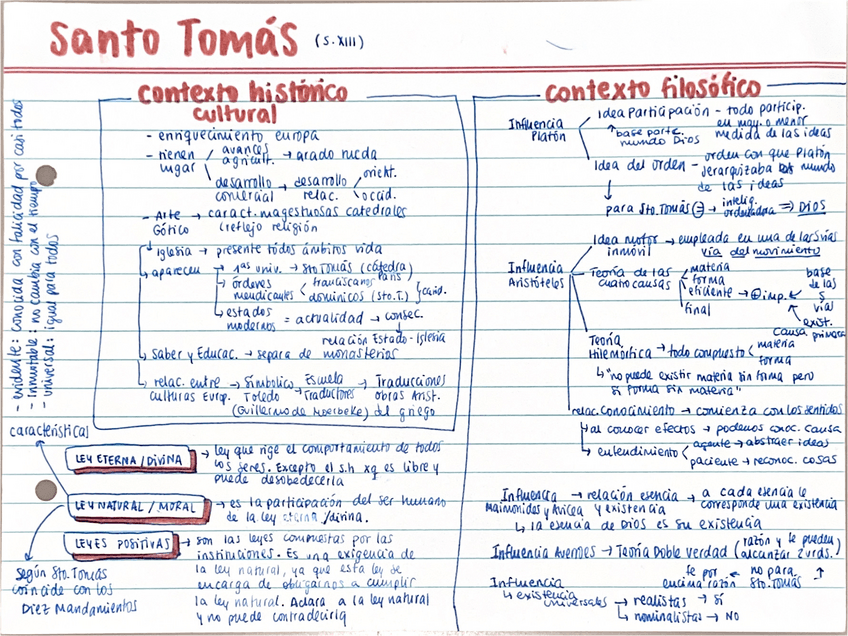 Santo Tomás (S.XIII)
contexto histórico
cultural
- enriquecimiento europa
- tienen lugar
avances agricult. → arado rueda
desarrollo comercial → desarrollo relac.
orient.
occid.
- Arte Gótico → caract. magestuosas catedrales
(reflejo religión
Iglesia → presente todos ámbiros vida
aparecen → 1as univ. → Sto Tomás (cátedra)
París
órdenes mendicantes
franciscanos
dominicos (Sto.T.)
estados modernos = actualidad → consec.
relación Estado-Iglesia
Saber y Educac. → separa de monasterios
relac. entre culturas Europ. → Simbólico Toledo → Escuela Traductores → Traducciones obras Arist. del griego
(Guillermo de Moerbeke)
- evidente: conocida con facilidad por casi todos
- inmutable: no cambia con el tiempo
- universal: igual para todos
característica
LEY ETERNA / DIVINA → ley que rige el comportamiento de todos
los seres. Excepto el s.h xq es libre y
puede desobedecerla
LEY NATURAL / MORAL → es la participación del ser humano
de la ley eterna /divina.
LEYES POSITIVAS → son las leyes compuestas por las
instituciones. Es una exigencia de
la ley natural, ya que esta ley se
encarga de obligarnos a cumplir
la ley natural. Aclara a la ley natural
y no puede contradecirla
Según Sto. Tomás
coincide con los
Diez Mandamientos
contexto filosófico
Influencia Platón
Idea Participación - todo particip.
en may. o menor
medida de las ideas
base parte.
mundo Dios
Idea del orden - orden con que Platón
jerarquizaba mundo
de las ideas
para Sto. Tomás → intelig.
ordenadora ⇒ DIOS
Influencia Aristóteles
Idea motor inmóvil → empleada en una de las vías
vía del movimiento
Teoría de las cuatro causas
materia
forma
eficiente → imp.
final
base
de las
5
vías
exist.
causa primera
Teoría
Hilemórfica → todo compuesto
materia
forma
"no puede existir materia sin forma pero
si forma sin materia"
relac. conocimiento → comienza con los sentidos
al conocer efectos → podemos conoc. causa
entendimiento
agente → abstraer ideas
paciente → reconoc. cosas
Influencia → relación esencia → a cada esencia le
Maimónides y Avicea y existencia corresponde una existencia
la esencia de Dios es su existencia
Influencia Averroes → Teoría Doble verdad (razón y fe pueden
alcanzar 2 vrds.)
fe por encima razón ← no para Sto. Tomás
Influencia
existencia
universales → realistas → Sí
nominalistas → NO